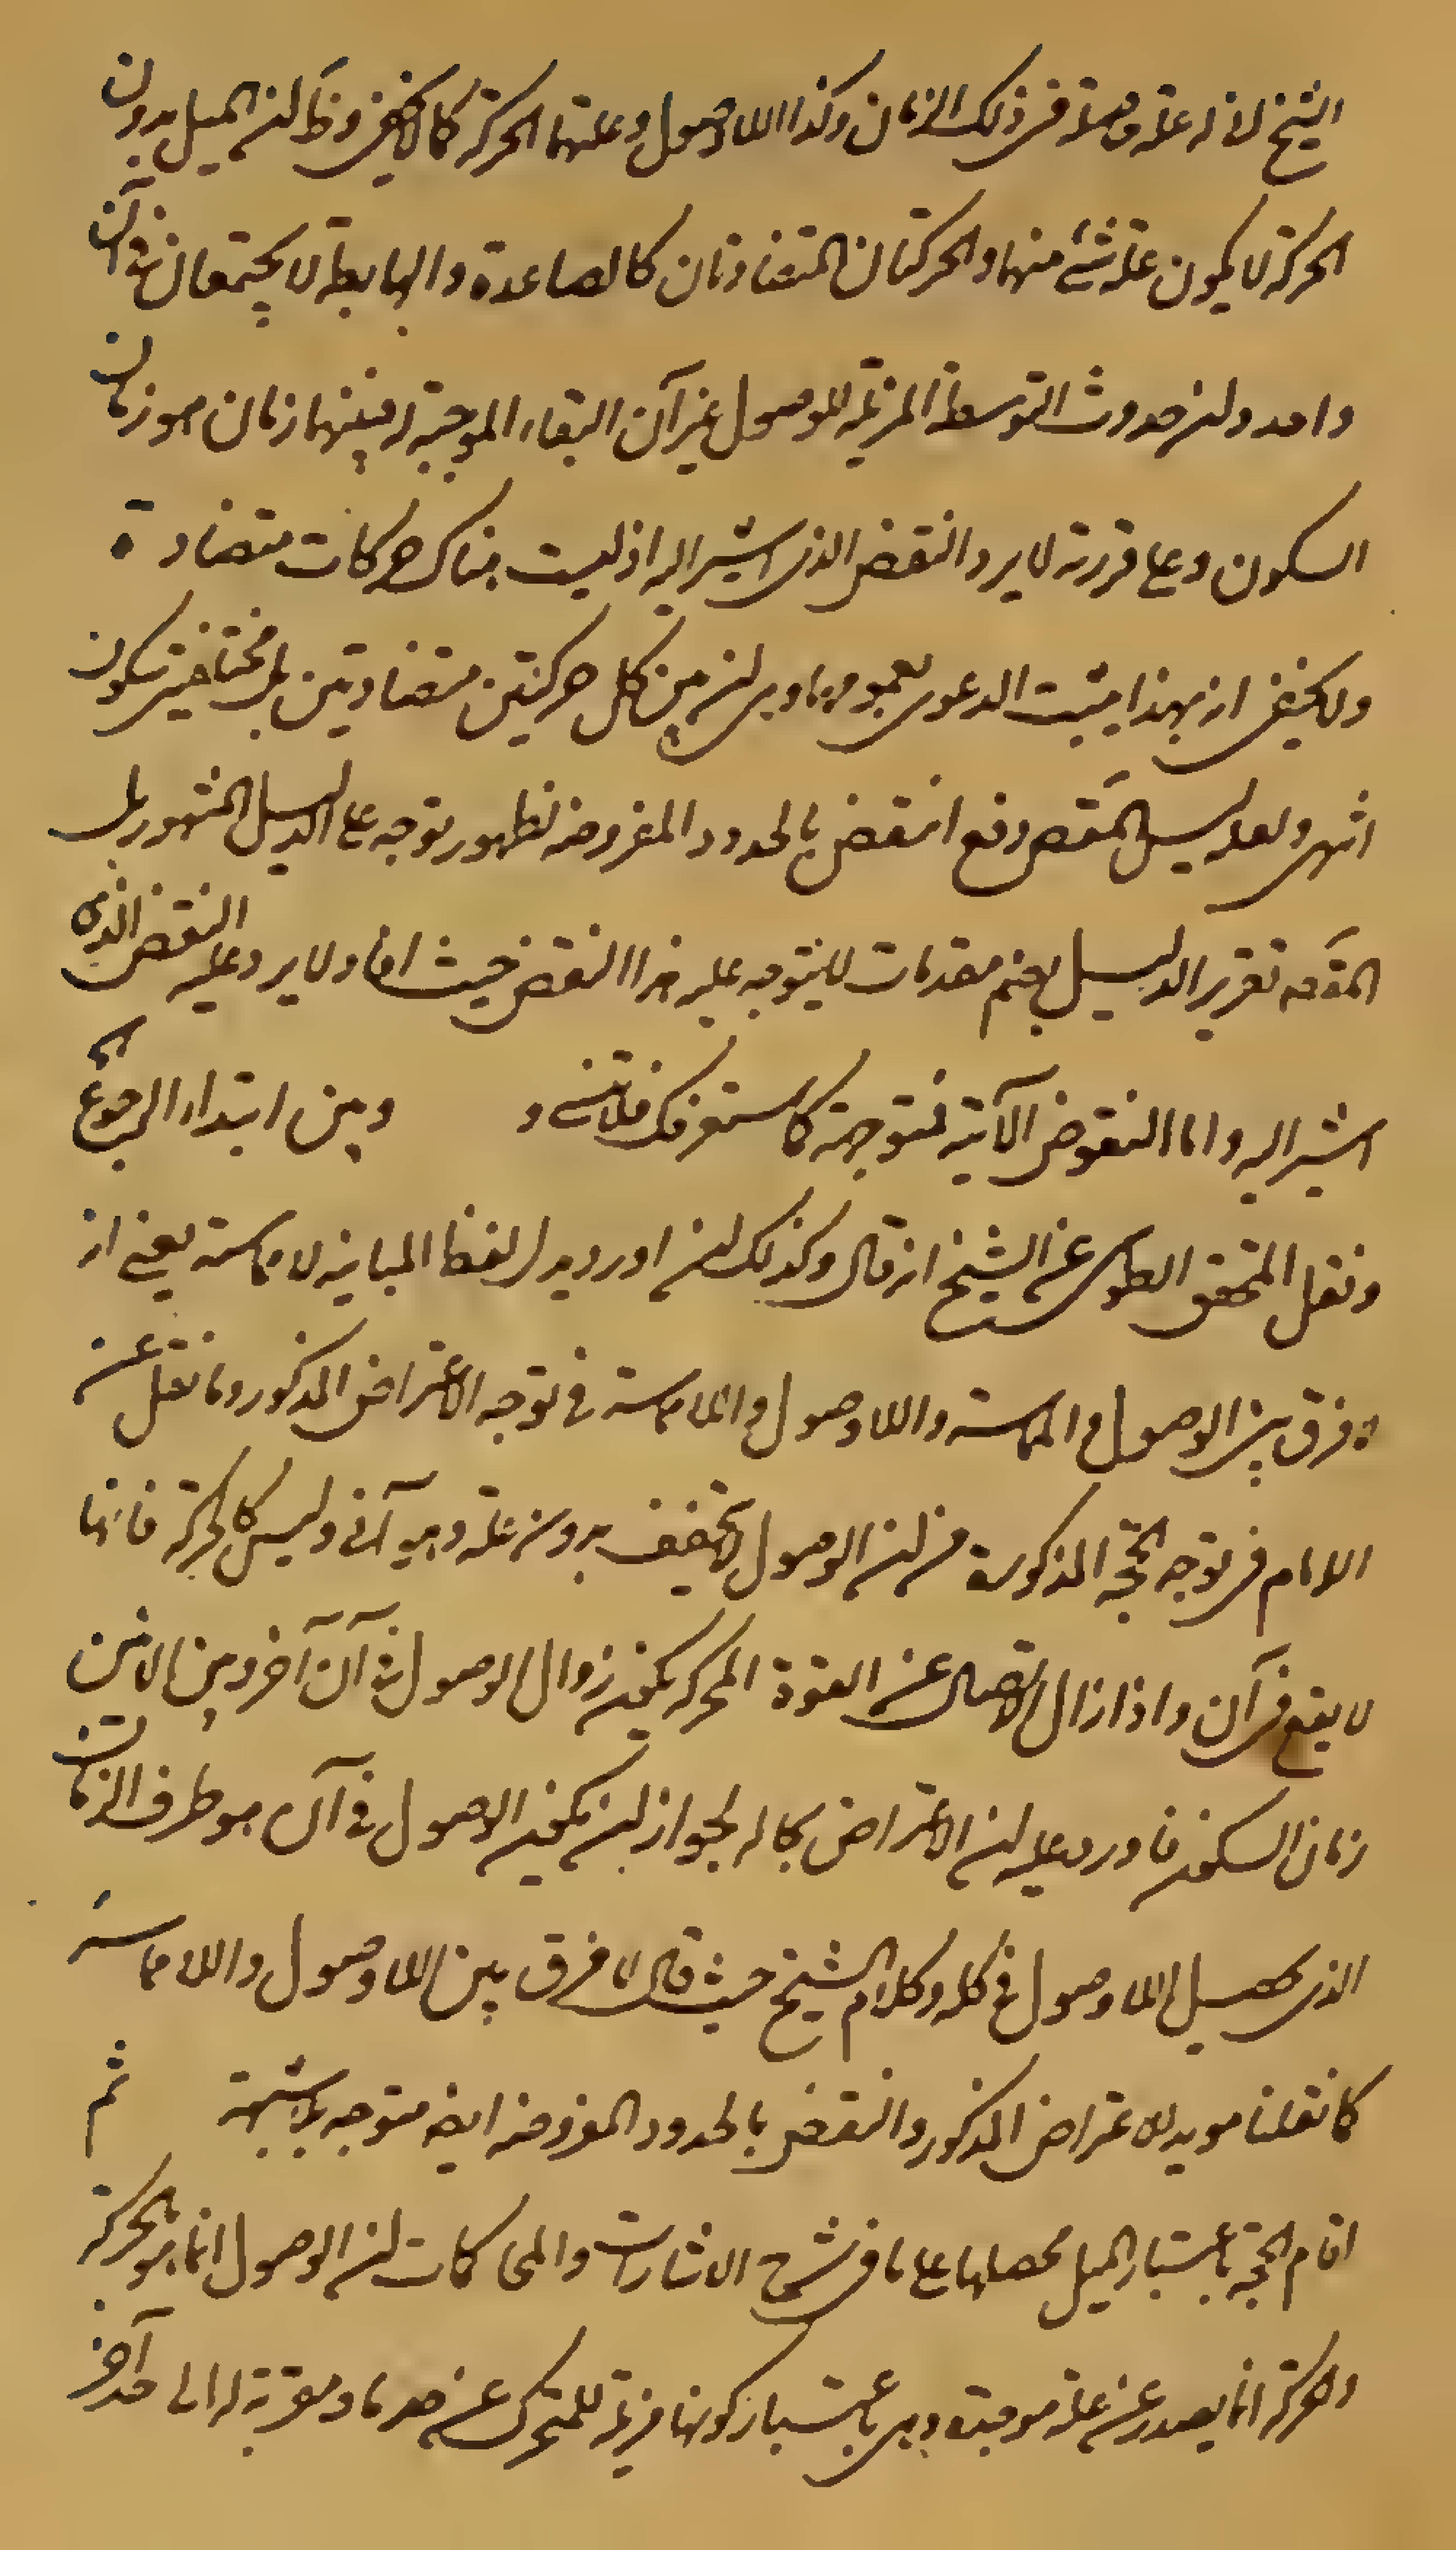 الشيخ لانه علة وصله في ذلك الزمان وكذا اللاوصول وعلتهما الحركة كما لا يخفى وظ ان الميل بدون
الحركة لا يكون علة شئ منهما والحركتان المتضادتان كالصاعدة والهابطة لا يجتمعان في آن
واحد وان حدوث التوسط المزيلة للوصول غير آن البقاء الموجبة له فبينهما زمان هو زمان
السكون وعلى ما قررته لا يرد النقض الذي اشير اليه اذ ليست هناك حركات متضادة
ولا يخفى ان بهذا يثبت الدعوى بعمومها وهي ان بين كل حركتين متضادتين بل مختلفتين سكون
انتهى ولعله ليس المقص دفع النقض بالحدود المفروضة لظهور توجهه على الدليل المشهور بل
المقصد تقرير الدليل بضم مقدمات لا يتوجه عليه هذا النقض حيث افاد ولا يرد عليه النقض الذي
اشير اليه واما النقوض الآتية فمتوجهة كما ستعرفك فلا تنس و وبين ابتداء الرجوع آه
ونقل المحقق الطوسي عن الشيخ انه قال وكذلك ان اورد بدل لفظ المباينة لا مماسة يعني انه
لا فرق بين الوصول والمماسة واللاوصول واللامماسة في توجه الاعتراض المذكور وما نقل عن
الامام في توجه الحجة المذكورة من ان الوصول لا يتحقق بدون علة وهي آنى وليس كالحركة فانها
لا يقع في آن واذا زال الاتصال عن القوة المحركة يكون زوال الوصول في آن آخر وبين الآنين
زمان السكون فاورد عليه ان الاعتراض بحاله لجواز ان يكون الوصول في آن هو طرف الزمان
الذي يحصل اللاوصول في كله وكلام الشيخ حيث قال لا فرق بين اللاوصول واللامماسة
كما نقلنا مويد للاعتراض المذكور والنقض بالحدود المفروضة ايضا متوجه بلا شبهة ثم
اقام الحجة باعتبار الميل محصلها على ما في شرح الاشارات والمحاكمات ان الوصول انما هو بالحركة
والحركة انما يصدر عن علة موجبة وهي باعتبار كونها مزيلة للمتحرك عن حد ما ومقربة له الى حد آخر